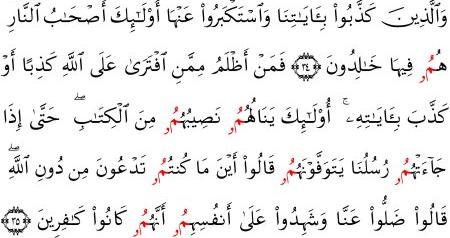 وَالَّذِينَ كَذَّبُواْ بِـَٔايَـٰتِنَا وَاسْتَكْبَرُواْ عَنْهَا أُوْلَـٰٓئِكَ أَصْحَـٰبُ النَّارِ
هُمُۥ فِيهَا خَـٰلِدُونَ ﴿٣٤﴾ فَمَنْ أَظْلَمُ مِمَّنِ افْتَرَىٰ عَلَى اللَّهِ كَذِبًا أَوْ
كَذَّبَ بِـَٔايَـٰتِهِۦٓ ۚ أُوْلَـٰٓئِكَ يَنَالُهُمُۥ نَصِيبُهُمُۥ مِنَ الْكِتَـٰبِ ۖ حَتَّىٰٓ إِذَا
جَآءَتْهُمُۥ رُسُلُنَا يَتَوَفَّوْنَهُمُۥ قَالُوٓاْ أَيْنَ مَا كُنتُمُۥ تَدْعُونَ مِن دُونِ اللَّهِ ۖ
قَالُواْ ضَلُّواْ عَنَّا وَشَهِدُواْ عَلَىٰٓ أَنفُسِهِمُۥٓ أَنَّهُمُۥ كَانُواْ كَـٰفِرِينَ ﴿٣٥﴾